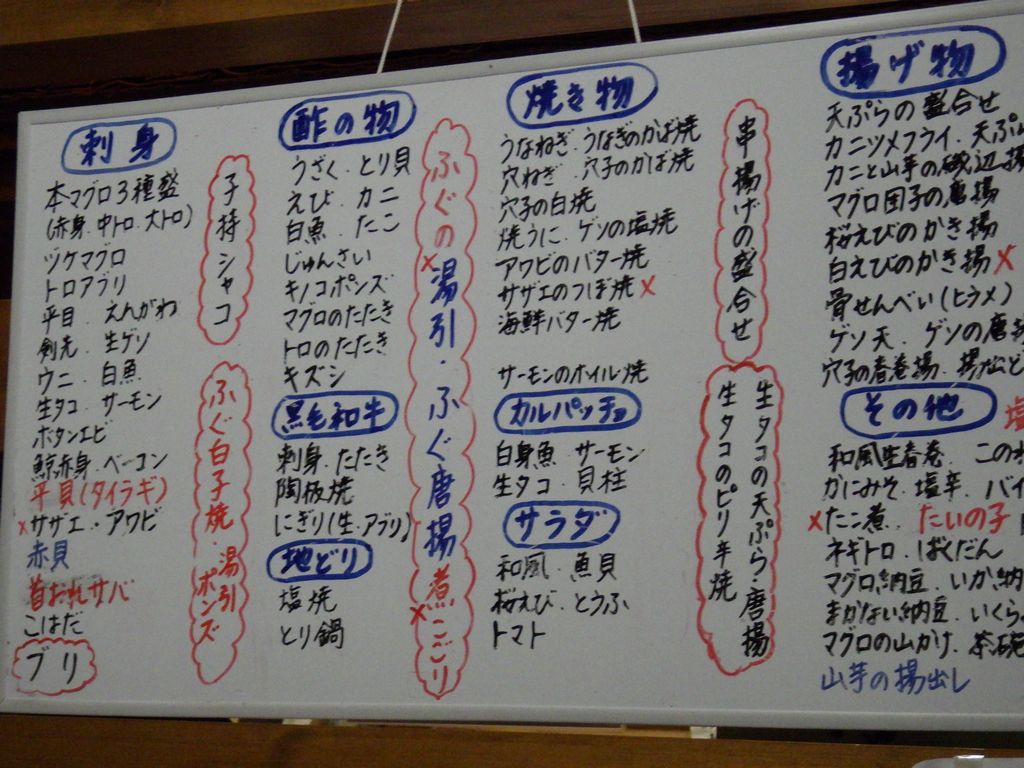 刺身
本マグロ3種盛
(赤身.中トロ.大トロ)
ヅケマグロ
トロアブリ
平目.えんがわ
剣先.生ゲソ
ウニ.白魚
生タコ.サーモン
ボタンエビ
鯨赤身.ベーコン
平貝(タイラギ)
×サザエ・アワビ
赤貝
首おれサバ
こはだ
ブリ
子持シャコ
ふぐ白子焼・湯引ポンズ
酢の物
うざく.とり貝
えび.カニ
白魚.たこ
じゅんさい
キノコポンズ
マグロのたたき
トロのたたき
キズシ
黒毛和牛
刺身.たたき
陶板焼
にぎり(生.アブリ)
地どり
塩焼
とり鍋
ふぐの湯引・ふぐ唐揚
×煮こごり
焼き物
うなねぎ.うなぎのかば焼
穴ねぎ.穴子のかば焼
穴子の白焼
焼うに.ゲソの塩焼
アワビのバター焼
サザエのつぼ焼×
海鮮バター焼
サーモンのホイル焼
カルパッチョ
白身魚.サーモン
生タコ.貝柱
サラダ
和風.魚貝
桜えび.とうふ
トマト
串揚げの盛合せ
生タコの天ぷら・唐揚
生タコのピリ辛焼
揚げ物
天ぷらの盛合せ
カニツメフライ.天ぷ
カニと山芋の磯辺揚
マグロ団子の唐揚
桜えびのかき揚
白えびのかき揚×
骨せんべい(ヒラメ)
ゲソ天.ゲソの唐
穴子の春巻揚.揚出ど
その他
和風生春巻.この
かにみそ.塩辛.バイ
×たこ煮.たいの子
ネギトロ.ばくだん
マグロ納豆.いか納
まかない納豆.いくら
マグロの山かけ.茶碗
山芋の揚出し